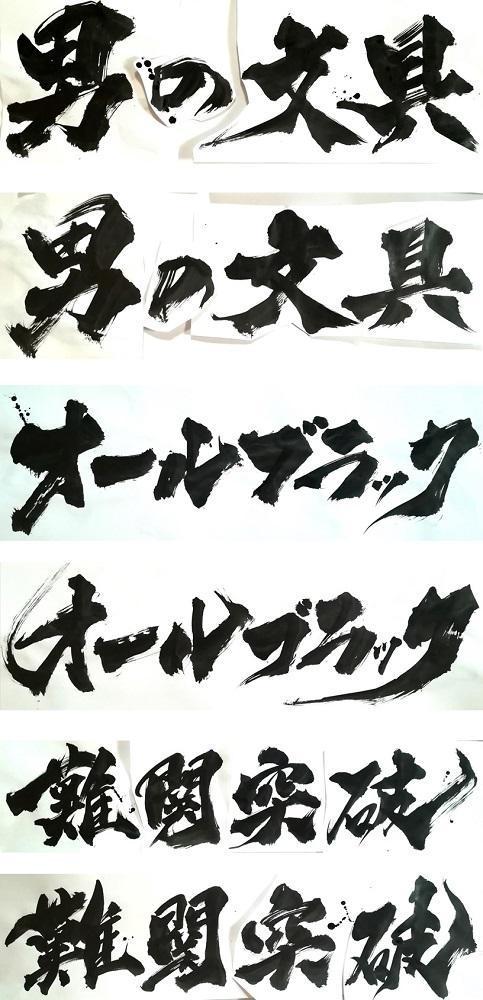 男の文具
男の文具
オールブラック
オールブラック
難関突破
難関突破